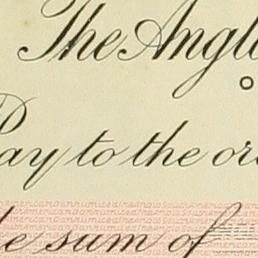 The Anglo
o
Pay to the or
e sum of